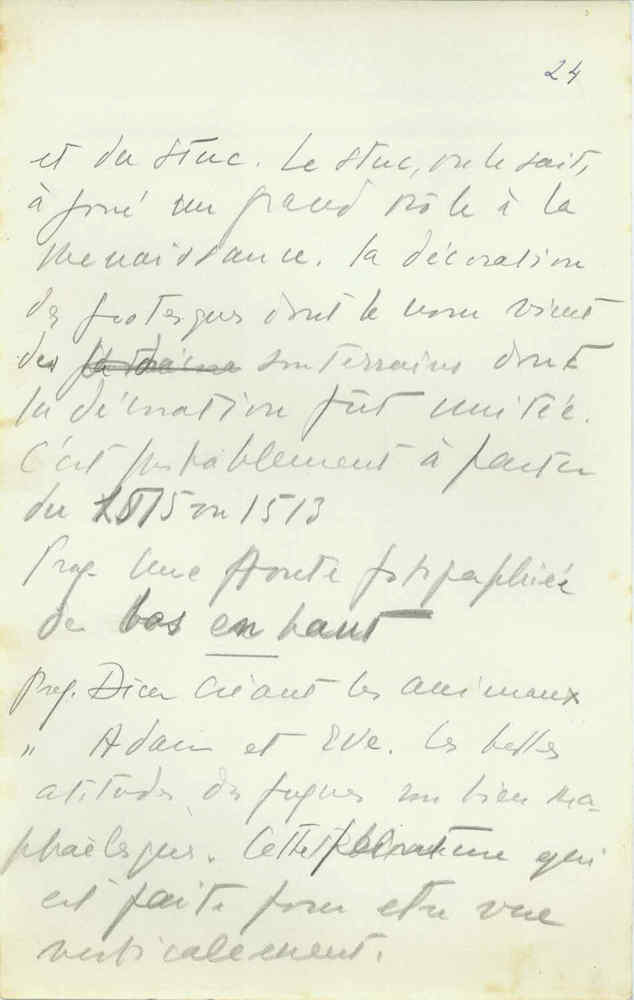 24
et du stuc. Le stuc, on le sait,
à joué un grand rôle à la
Renaissance. la décoration
des grotesques dont le nom vient
des souterrains dont
la décoration fut imitée.
C'est probablement à partir
du 1515 ou 1513
Proj. Une voute fotographiée
de bas en haut
Proj. Dieu créant les animaux
" Adam et Eve. Les belles
atitudes des figures sont bien Ra-
phaëlesques. Cette peinture qui
est faite pour etre vue
verticalement.